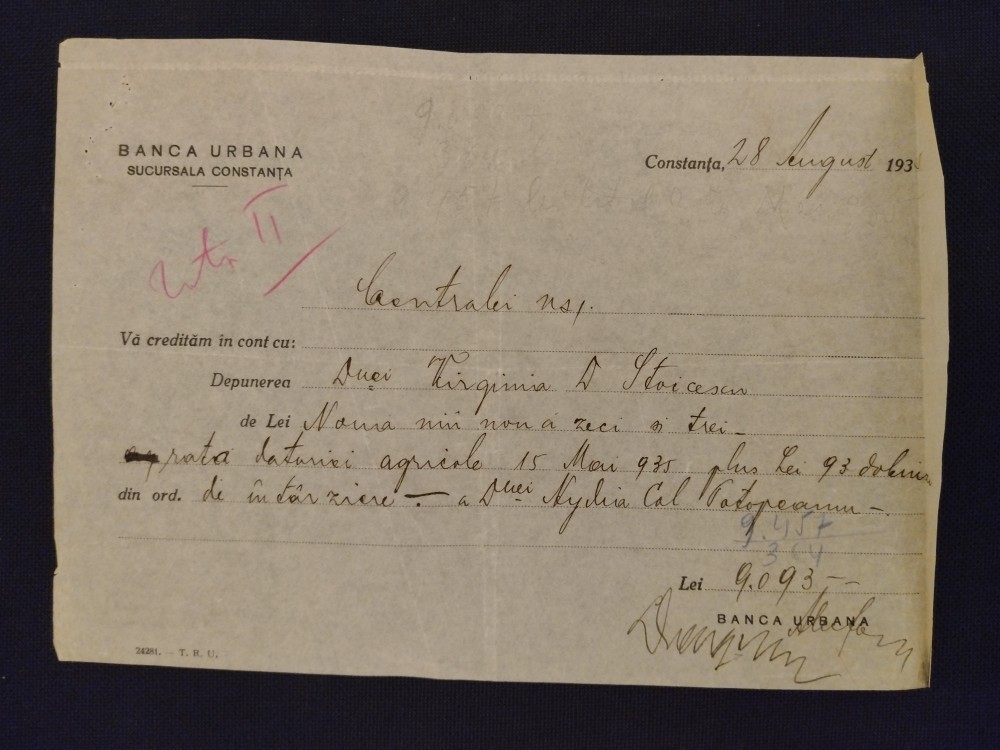 BANCA URBANA
SUCURSALA CONSTANȚA
Constanța, 28 August 193
II
Centralei nsj.
Vă credităm în cont cu:
Depunerea Dnei Virginia D Stoicescu
de Lei Noua mii noua zeci si trei —
rata datoriei agricole 15 Mai 935 plus Lei 93 dobân
din ord. de întârziere — a Dnei Nydia Col Potopeanu —.
9.457
364
Lei 9.093 — —
BANCA URBANA
24281. — T. R. U.